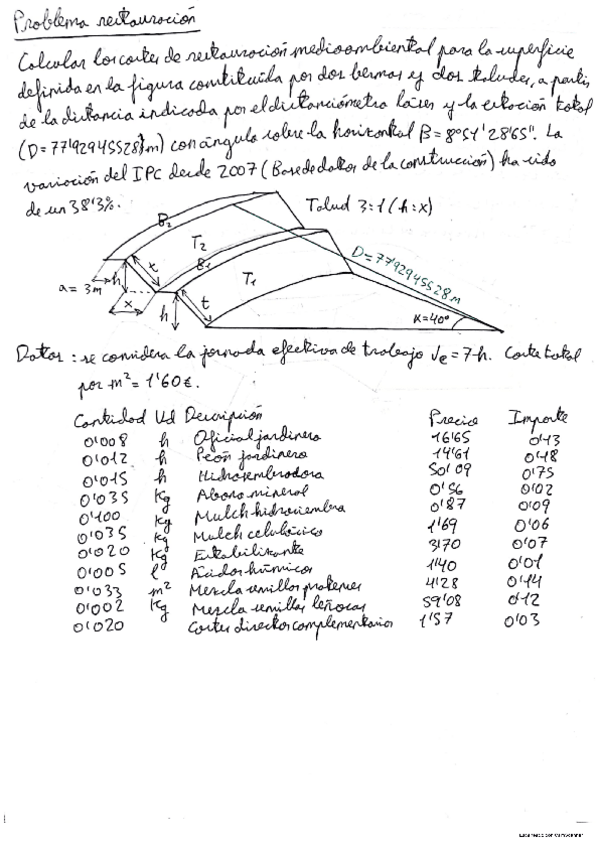 Problema restauración
Calcular los costes de restauración medioambiental para la superficie
definida en la figura constituida por dos bermas y dos taludes, a partir
de la distancia indicada por el distanciómetro láser y la estación total
(D=77'92945528 m) con ángulo sobre la horizontal β=8º51'28'65". La
variación del IPC desde 2007 (Base de datos de la construcción) ha sido
de un 38'3%.
Talud 3:1 (h:x)
B2
T2
B1
T1
D=77'92945528 m
a=3m
h
t
x
h
t
α=40º
Datos: se considera la jornada efectiva de trabajo Je=7h. Coste total
por m²=1'60€.
Cantidad Ud Descripción Precio Importe
0'008 h Oficial jardinero 16'65 0'13
0'012 h Peón jardinero 14'61 0'18
0'015 h Hidrosembradora 50'09 0'75
0'035 Kg Abono mineral 0'56 0'02
0'100 Kg Mulch hidrosiembra 0'87 0'09
0'035 Kg Mulch celulósico 1'69 0'06
0'020 Kg Estabilizante 3'70 0'07
0'005 l Ácidos húmicos 1'40 0'01
0'033 m² Mezcla semillas pratenses 4'28 0'14
0'002 Kg Mezcla semillas leñosas 59'08 0'12
0'020 Costes directos complementarios 1'57 0'03